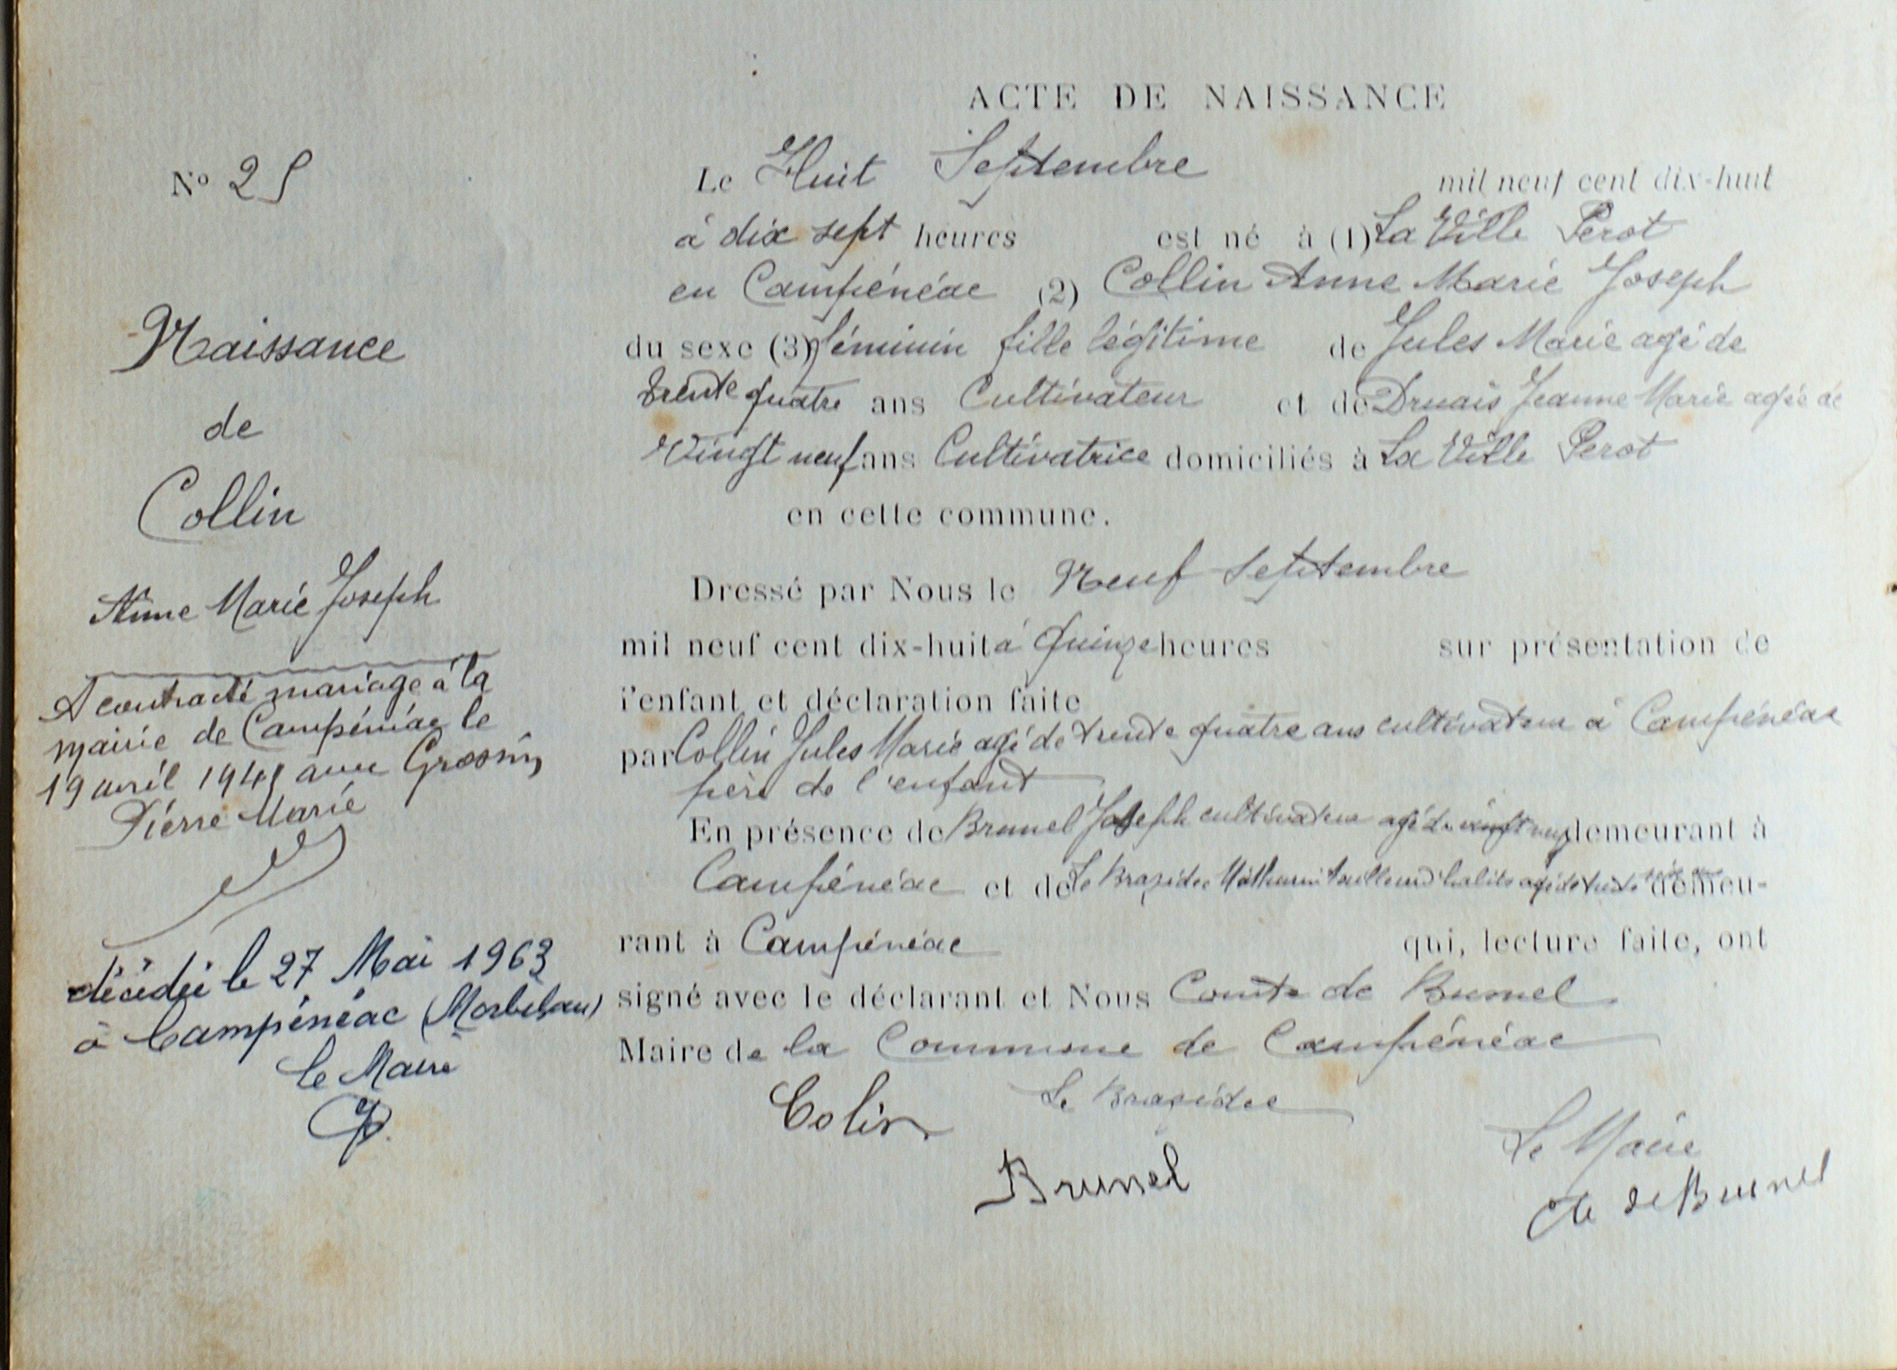 ACTE DE NAISSANCE
N° 25
Naissance
de
Collin
Anne Marie Joseph
A contracté mariage à la
mairie de Campénéac le
19 avril 1941 avec Grossin
Pierre Marie
décédée le 27 Mai 1963
à Campénéac (Morbihan)
Le Maire
Le Huit Septembre mil neuf cent dix-huit
à dix sept heures est né à (1) La Ville Perot
en Campénéac (2) Collin Anne Marie Joseph
du sexe (3) féminin fille légitime de Jules Marie agé de
trente quatre ans Cultivateur et de Druais Jeanne Marie agée de
Vingt neuf ans Cultivatrice domiciliés à La Ville Perot
en cette commune.
Dressé par Nous le Neuf Septembre
mil neuf cent dix-huit à quinze heures sur présentation de
l'enfant et déclaration faite
par Collin Jules Marie agé de trente quatre ans cultivateur à Campénéac
père de l'enfant
En présence de Brunel Joseph cultivateur agé de vingt neuf demeurant à
Campénéac et de Le Brazidec Mathurin tailleur d'habits agé de trente demeu-
rant à Campénéac qui, lecture faite, ont
signé avec le déclarant et Nous Comte de Busnel
Maire de la Commune de Campénéac
Colin Le Brazidec
Brunel
Le Maire
Cte de Busnel